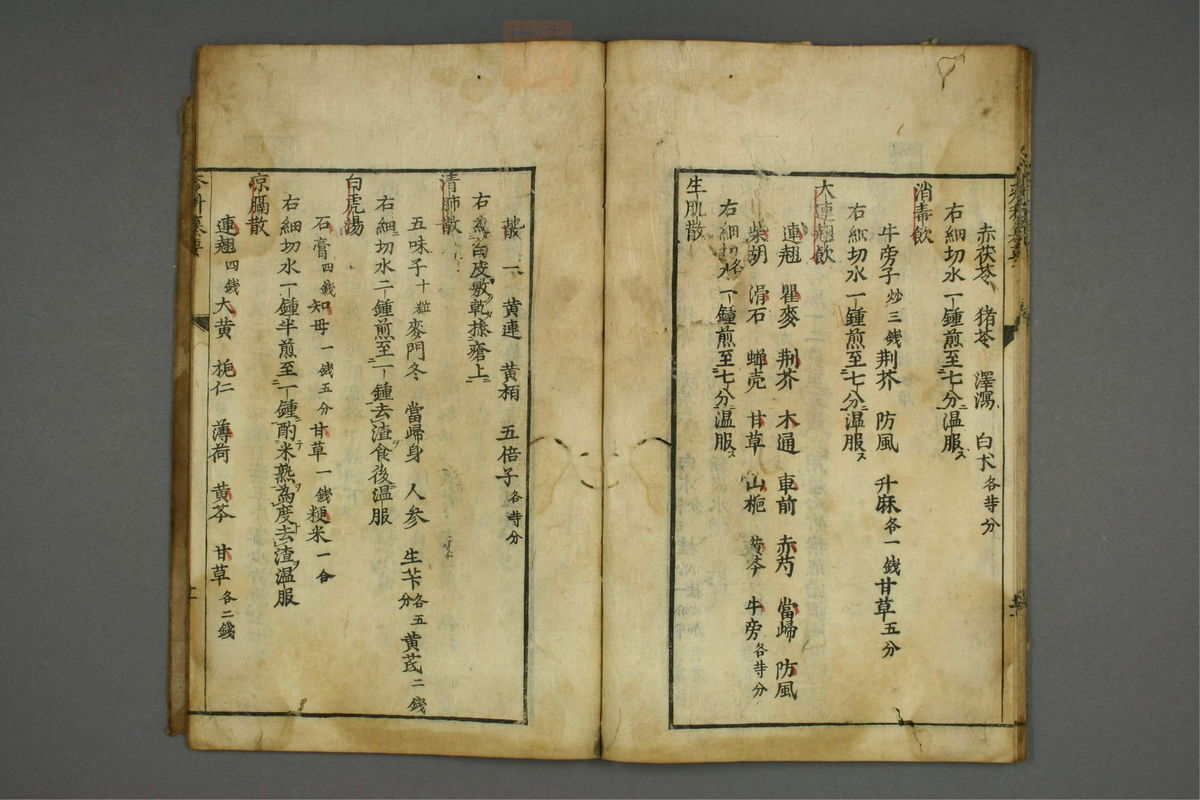 赤茯苓 猪苓 澤瀉 白朮各等分
右細切水一鍾煎至七八分温服
消毒飲
牛旁子炒三錢荆芥 防風 升麻各一錢甘草五分
右細切水一鍾煎至七八分温服
大連翹飲
連翹 瞿麥 荆芥 木通 車前 赤芍 當歸 防風
柴胡 滑石 蝉壳 甘草 山梔 黄岑 牛旁各等分
右細切水一鍾煎至七八分温服
生肌散
散 一 黄連 黄栢 五倍子各等分
右為白皮敷乾摻瘡上
清肺散
五味子十粒麥門冬 當歸身 人参 生苄各五分黄芪二錢
右細切水二鍾煎至一鍾去渣食後温服
白虎湯
石膏四錢知母一錢五分甘草一錢粳米一合
右細切水一鍾半煎至一鍾酌米熟為度去渣温服
凉膈散
連翹四錢大黄 梔仁 薄荷 黄芩 甘草各二錢